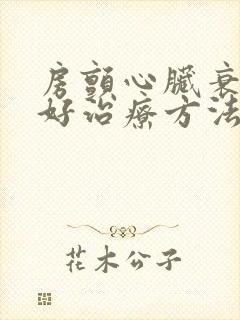 房顫心臟衰
好治療方法
花木公子